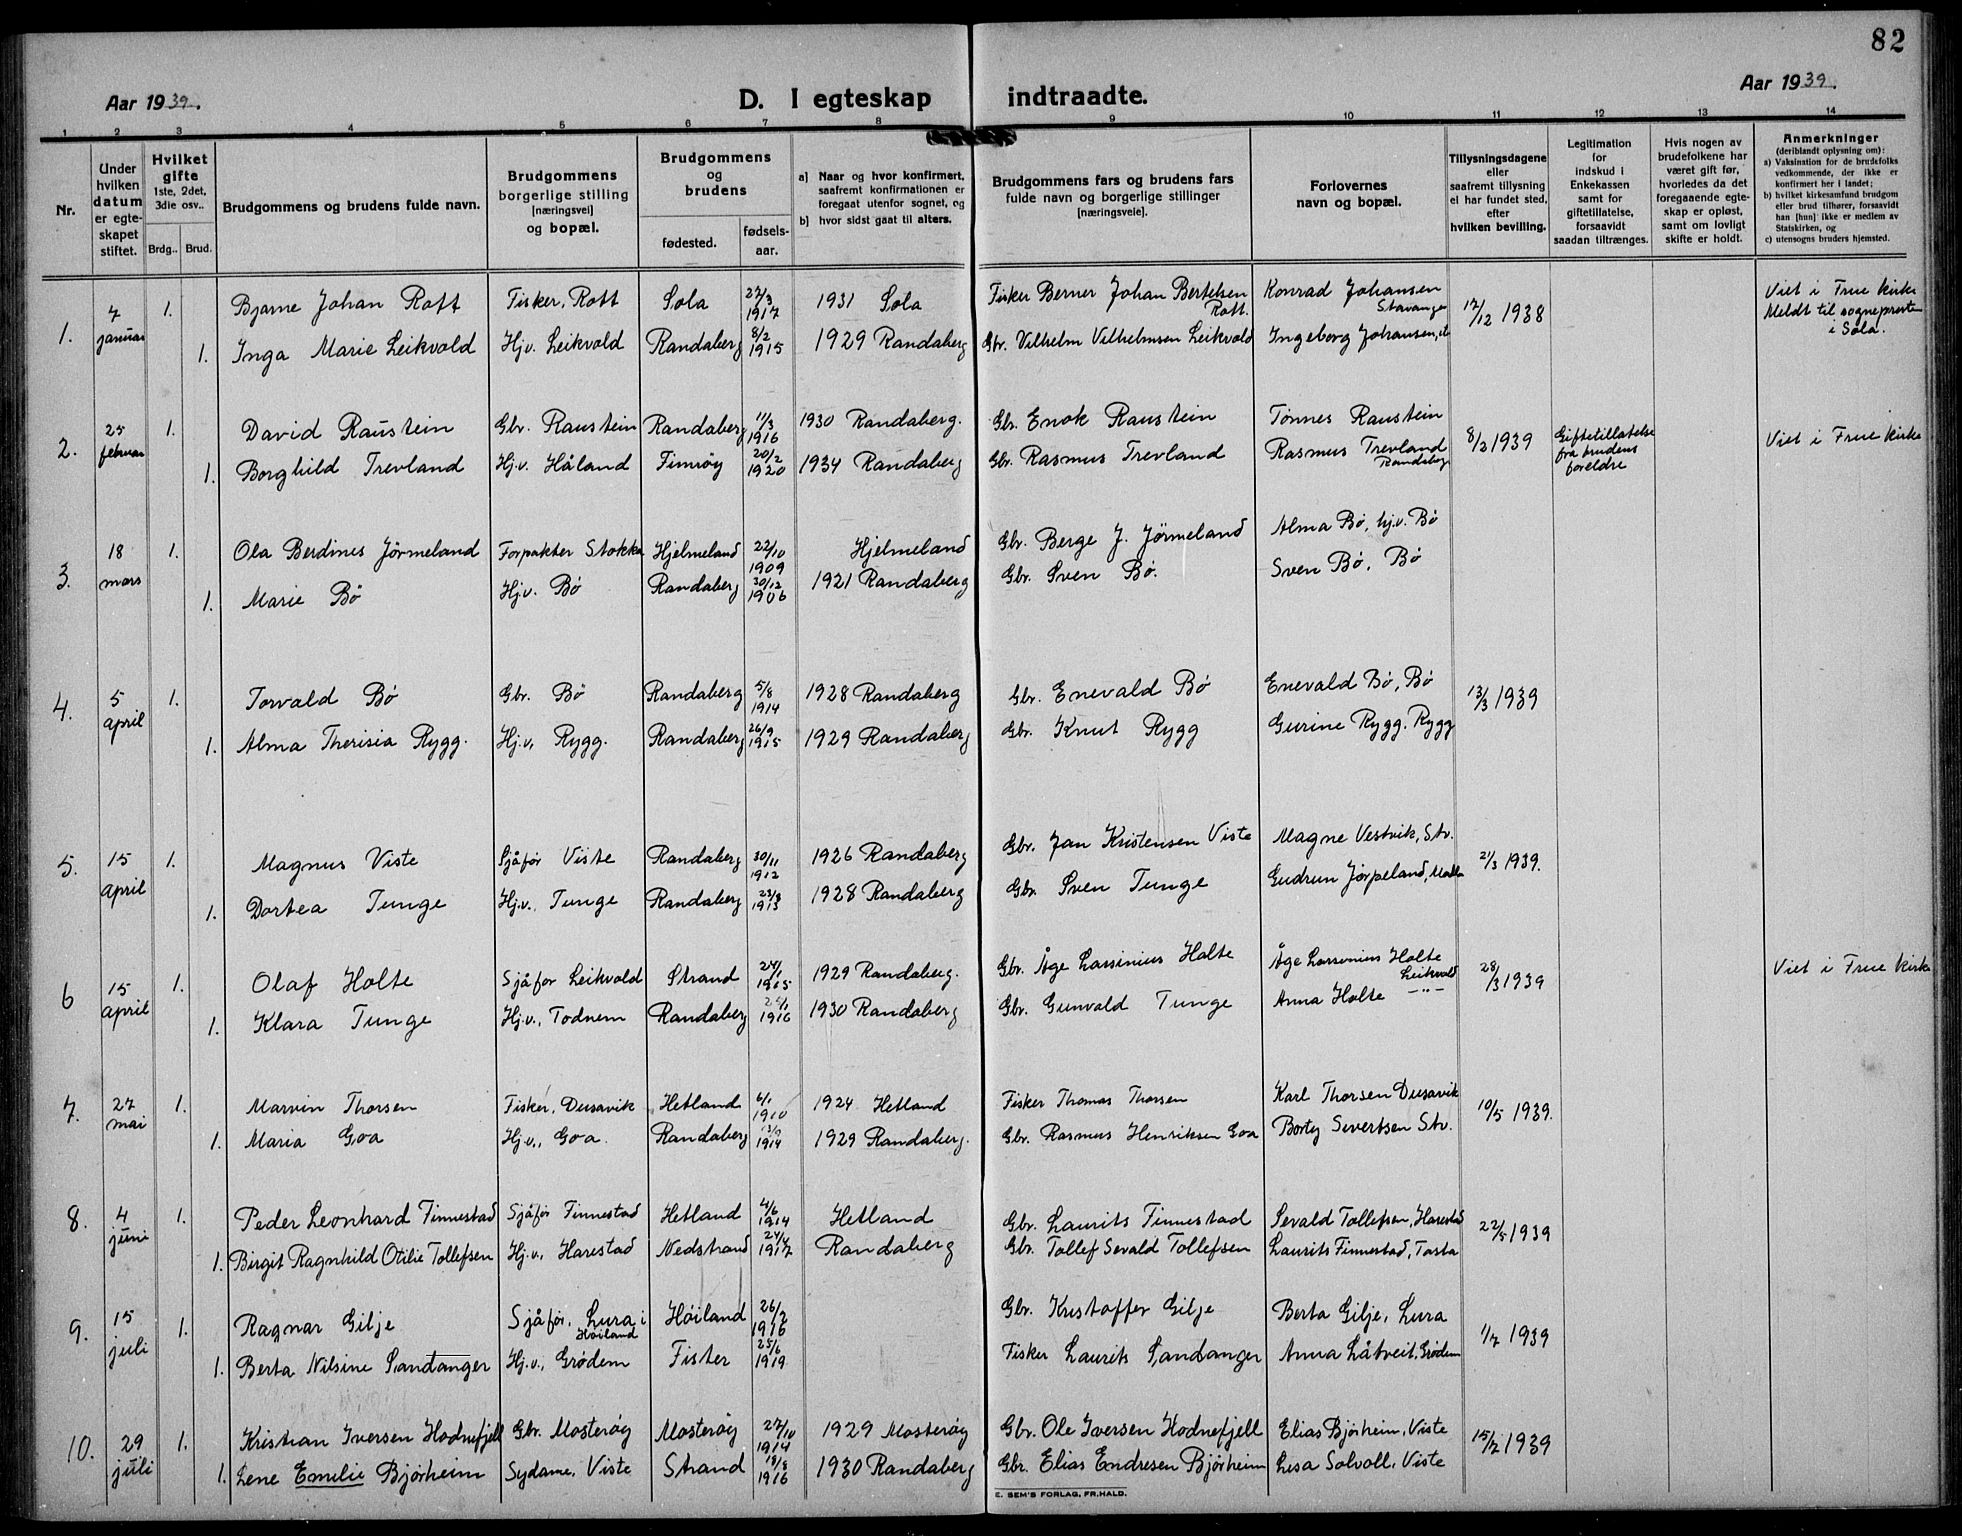 82
Aar 1939.
D. I egteskap indtraadte.
Aar 1939.
1 2 3 4 5 6 7 8 9 10 11 12 13 14
Nr.
Under hvilken datum er egteskapet stiftet.
Hvilket gifte 1ste, 2det, 3die osv..
Brdg.. Brud.
Brudgommens og brudens fulde navn.
Brudgommens borgerlige stilling [næringsvei] og bopæl.
Brudgommens og brudens
fødested. fødselsaar.
a) Naar og hvor konfirmert, saafremt konfirmationen er foregaat utenfor sognet, og
b) hvor sidst gaat til alters.
Brudgommens fars og brudens fars fulde navn og borgerlige stillinger [næringsveie].
Forlovernes navn og bopæl.
Tillysningsdagene eller saafremt tillysning ei har fundet sted, efter hvilken bevilling.
Legitimation for indskud i Enkekassen samt for giftetillatelse, forsaavidt saadan tiltrænges.
Hvis nogen av brudefolkene har været gift før, hvorledes da det foregaaende egteskap er opløst, samt om lovligt skifte er holdt.
Anmerkninger (deriblandt oplysning om):
a) Vaksination for de brudefolks vedkommende, der ikke er konfirmert her i landet;
b) hvilket kirkesamfund brudgom eller brud tilhører, forsaavidt han [hun] ikke er medlem av Statskirken, og
c) utensogns bruders hjemsted.
1. 7 januar 1. Bjarne Johan Rott Fisker, Rott Sola 27/3 1917 1931 Sola Fisker Berner Johan Bertelsen Rott. Konrad Johansen Stavanger 17/12 1938 Viet i Frue kirke Meldt til sognepresten i Sola.
1. Inga Marie Leikvold Hj.v. Leikvold Randaberg 8/2 1915 1929 Randaberg Gbr. Vilhelm Vilhelmsen Leikvold Ingeborg Johansen,
2. 25 februar 1. David Raustein Gbr. Raustein Randaberg 11/3 1916 1930 Randaberg. Gbr. Enok Raustein Tønnes Raustein 8/2 1939 Giftetillatelse fra brudens foreldre Viet i Frue kirke
1. Borghild Trevland Hj.v. Håland Finnøy 20/2 1920 1934 Randaberg Gbr. Rasmus Trevland Rasmus Trevland Randaberg
3. 18 mars 1. Ola Berdines Jørmeland Forpakter Stokka Hjelmeland 22/10 1909 Hjelmeland Gbr. Berge J. Jørmeland Alma Bø, hj.v. Bø
1. Marie Bø Hj.v. Bø Randaberg 30/12 1906 1921 Randaberg Gbr. Sven Bø. Sven Bø, Bø
4. 5 april 1. Torvald Bø Gbr. Bø Randaberg 5/8 1914 1928 Randaberg Gbr. Enevald Bø Enevald Bø, Bø 13/3 1939
1. Alma Therisia Rygg. Hj.v, Rygg. Randaberg 26/9 1915 1929 Randaberg Gbr. Knut Rygg Gurine Rygg. Rygg
5. 15 april 1. Magnus Viste Sjåfør Viste Randaberg 30/11 1912 1926 Randaberg Gbr. Jan Kristensen Viste Magne Vestvik, Stv. 21/3 1939.
1. Dortea Tunge Hj.v. Tunge Randaberg 1913 1928 Randaberg Gbr. Sven Tunge Gudrun Jørpeland,
6 15 april 1. Olaf Holte Sjåfør Leikvold Strand 24/1 1915 1929 Randaberg. Gbr. Åge Lassinius Holte Åge Lassenius Holte Leikvold 28/3 1939 Viet i Frue kirke
1. Klara Tunge Hj.v., Todnem Randaberg 1916 1930 Randaberg Gbr. Gunvald Tunge Anna Holte —"—
7. 27 mai 1. Marvin Thorsen Fisker, Dusavik Hetland 6/1 1910 1924 Hetland Fisker Thomas Thorsen Karl Thorsen Dusavik 10/5 1939.
1. Maria Goa Hj.v., Goa. Randaberg 1914 1929 Randaberg. Gbr. Rasmus Henriksen Goa Borty Severtsen Stv.
8. 4 juni 1. Peder Leonhard Finnestad Sjåfør Finnestad Hetland 4/6 1914 Hetland Gbr. Laurits Finnestad Sevald Tollefsen, Harestad 22/5 1939
1. Birgit Ragnhild Otilie Tollefsen Hj.v., Harestad Nedstrand 24/4 1917 Randaberg Gbr. Tollef Sevald Tollefsen Laurits Finnestad, Tasta
9. 15 juli 1. Ragnar Gilje Sjåfør, Lura i Høiland Høiland 26/2 1916 Gbr. Kristoffer Gilje Berta Gilje, Lura 1/7 1939
1. Berta Nilsine Sandanger Hj.v., Grødem Fister 25/6 1919 Fisker Laurits Sandanger Anna Låtveit, Grødem
10. 29 juli 1. Kristian Iversen Hodnefjell Gbr. Mosterøy Mosterøy 27/10 1914 1929 Mosterøy Gbr. Ole Iversen Hodnefjell Elias Bjørheim, Viste 15/7 1939
1. Lene Emilie Bjørheim Sydame, Viste Strand 18/8 1916 1930 Randaberg Gbr. Elias Endresen Bjørheim Lesa Solvoll, Viste
E. SEM'S FORLAG, FR.HALD.